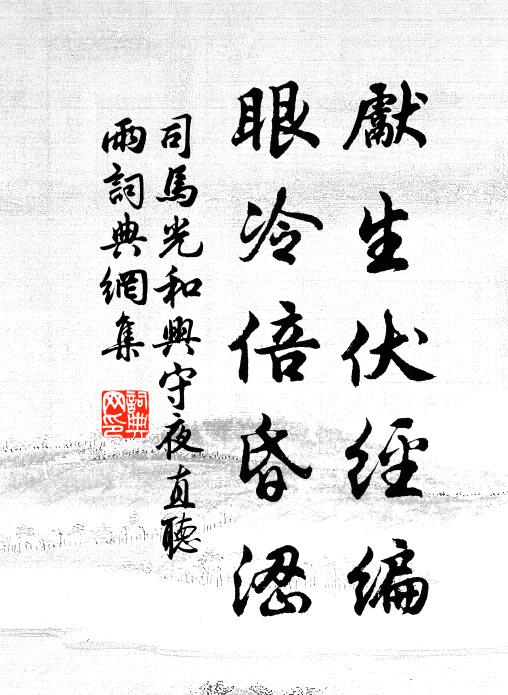 獻生伏經編
眼冷倍昏澀
司馬光和興守夜直聽
雨詞典網集
詞典
网印